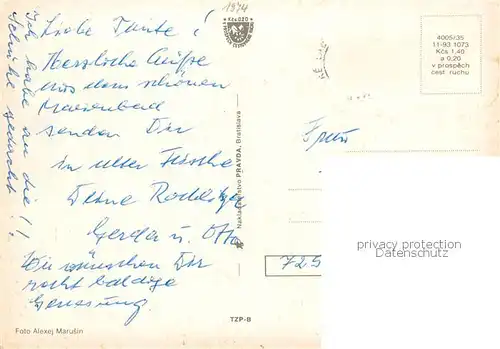 Liebe Tante!
Herzliche Grüße
aus dem schönen
Marienbad
senden Dir
in alter Frische
Deine
Gerda u. Otto
Wir wünschen Dir
recht baldige
Genesung.
Ich habe an die
Schuhe gedacht!!
Foto Alexej Marušin
TZP-B
Nakladateľstvo PRAVDA, Bratislava
1974
Kčs 0,20
4005/35
11-93 1073
Kčs 1,40
a 0,20
v prospěch
čest ruchu
Frau
725
privacy protection
Datenschutz